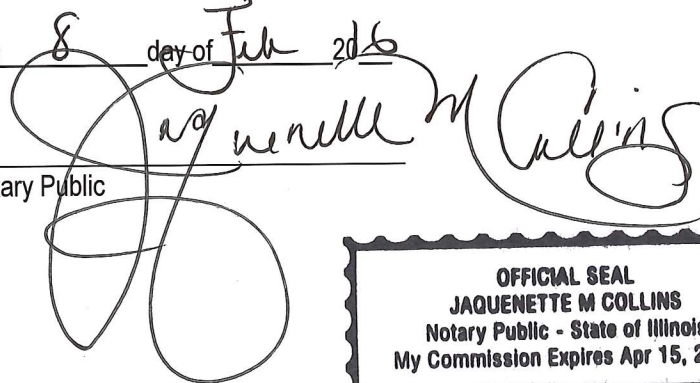 8 day of Feb 2016
Jaquenette M Collins
ary Public
OFFICIAL SEAL
JAQUENETTE M COLLINS
Notary Public - State of Illinois
My Commission Expires Apr 15, 2